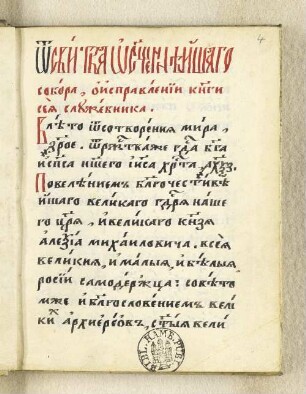 4
Ѿсвитꙗ ѿсщеннѣйшаго
собора, оисправленїи книги
сеѧ служебника.
Влѣто ѿсотворенїѧ мира,
҂зрое. Ѿржⷭ҇тваже гдⷭ҇а бг҃а
испⷭ҇а нш҃его іи҃са хрⷭ҇та, ҂ахѯз.
Повелѣнїемъ бл҃гочестивѣ
йшаго великаго гдⷭ҇рѧ наше
го цр҃ѧ, ивеликаго кн҃зѧ
алеѯїа михаиловича, всеѧ
великиѧ, ималыѧ, ибѣлыѧ
росїи самодержца: совѣтѡ
мже ибл҃гословенїемъ вели
ки архиереовъ, ст҃ыѧ вели
BIBL. HAMB. PUBL.